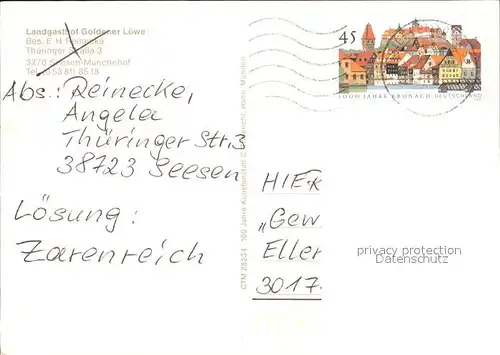 Landgasthof Goldener Löwe
Bes. E. H. Reinecke
Thüringer Straße 3
3370 Seesen-Münchehof
Tel. (0 53 81) 85 18
Abs.: Reinecke,
Angela
Thüringer Str. 3
38723 Seesen
Lösung:
Zarenreich
45
1000 JAHRE KRONACH DEUTSCHLAND
HIER
„Gew
Eller
3017.
privacy protection
Datenschutz
CTM 28234 100 Jahre Kunstanstalt